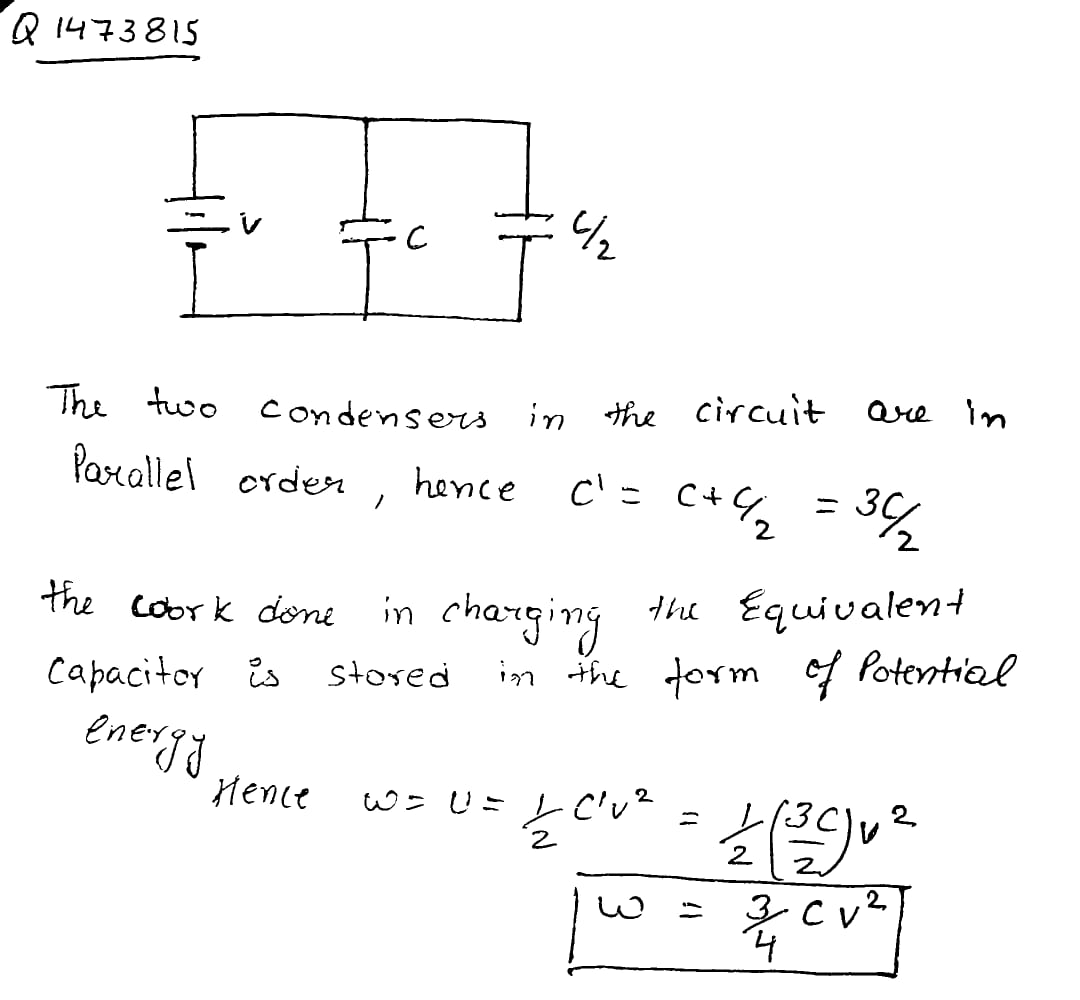 Q 1473815
V
C
C/2
The two condensers in the circuit are in
Parallel order, hence C' = C + C/2 = 3C/2
the work done in charging the Equivalent
Capacitor is stored in the form of Potential
energy
Hence W = U = 1/2 C'V² = 1/2 (3C/2) V²
W = 3/4 CV²